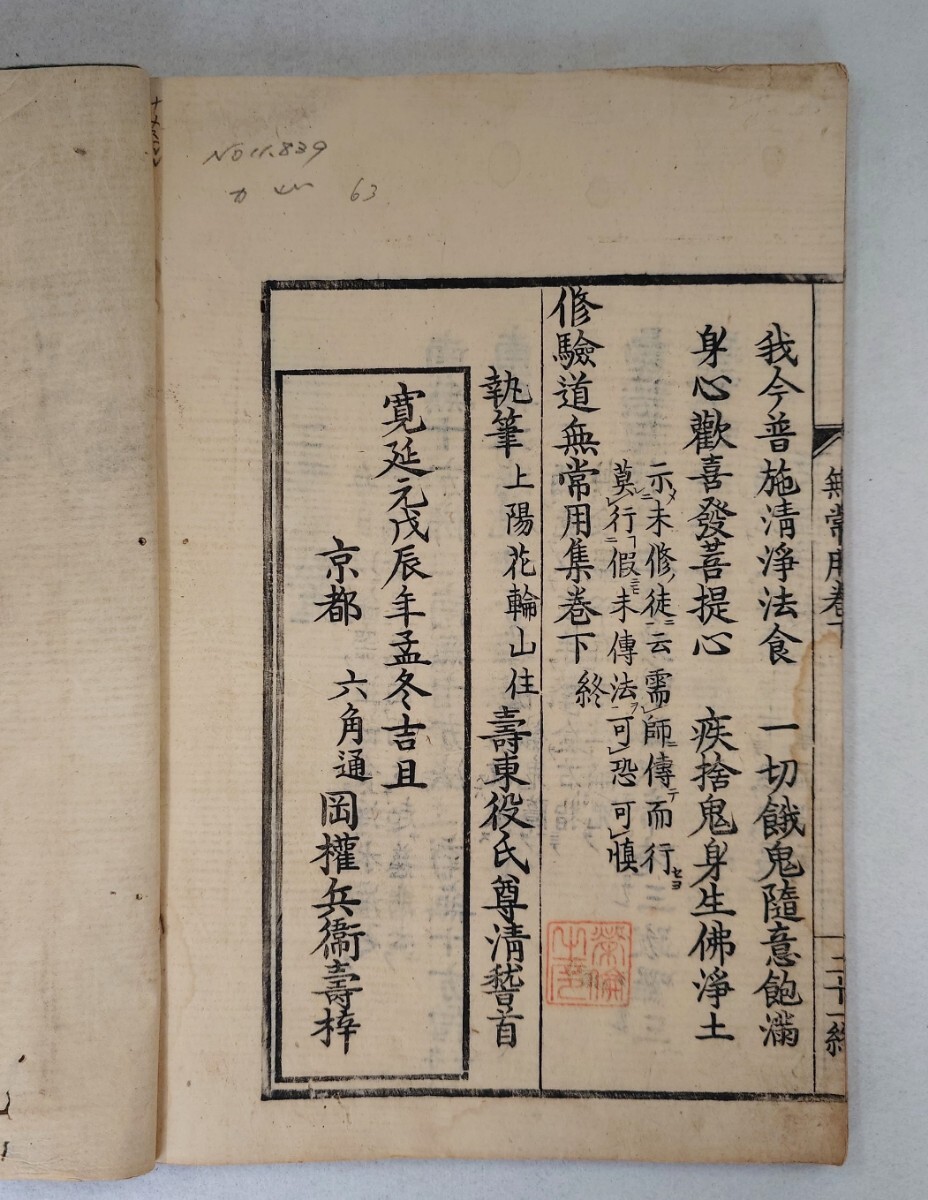 無常用卷下
二十一終
我今普施清淨法食 一切餓鬼隨意飽滿
身心歡喜發菩提心 疾捨鬼身生佛淨土
示未修徒云需師傳而行セヨ
莫行假未傳法可恐可慎
修驗道無常用集卷下終
執筆上陽花輪山住壽東役氏尊清謹首
寛延元戊辰年孟冬吉旦
京都 六角通 岡權兵衞壽梓
NO 11.839
63